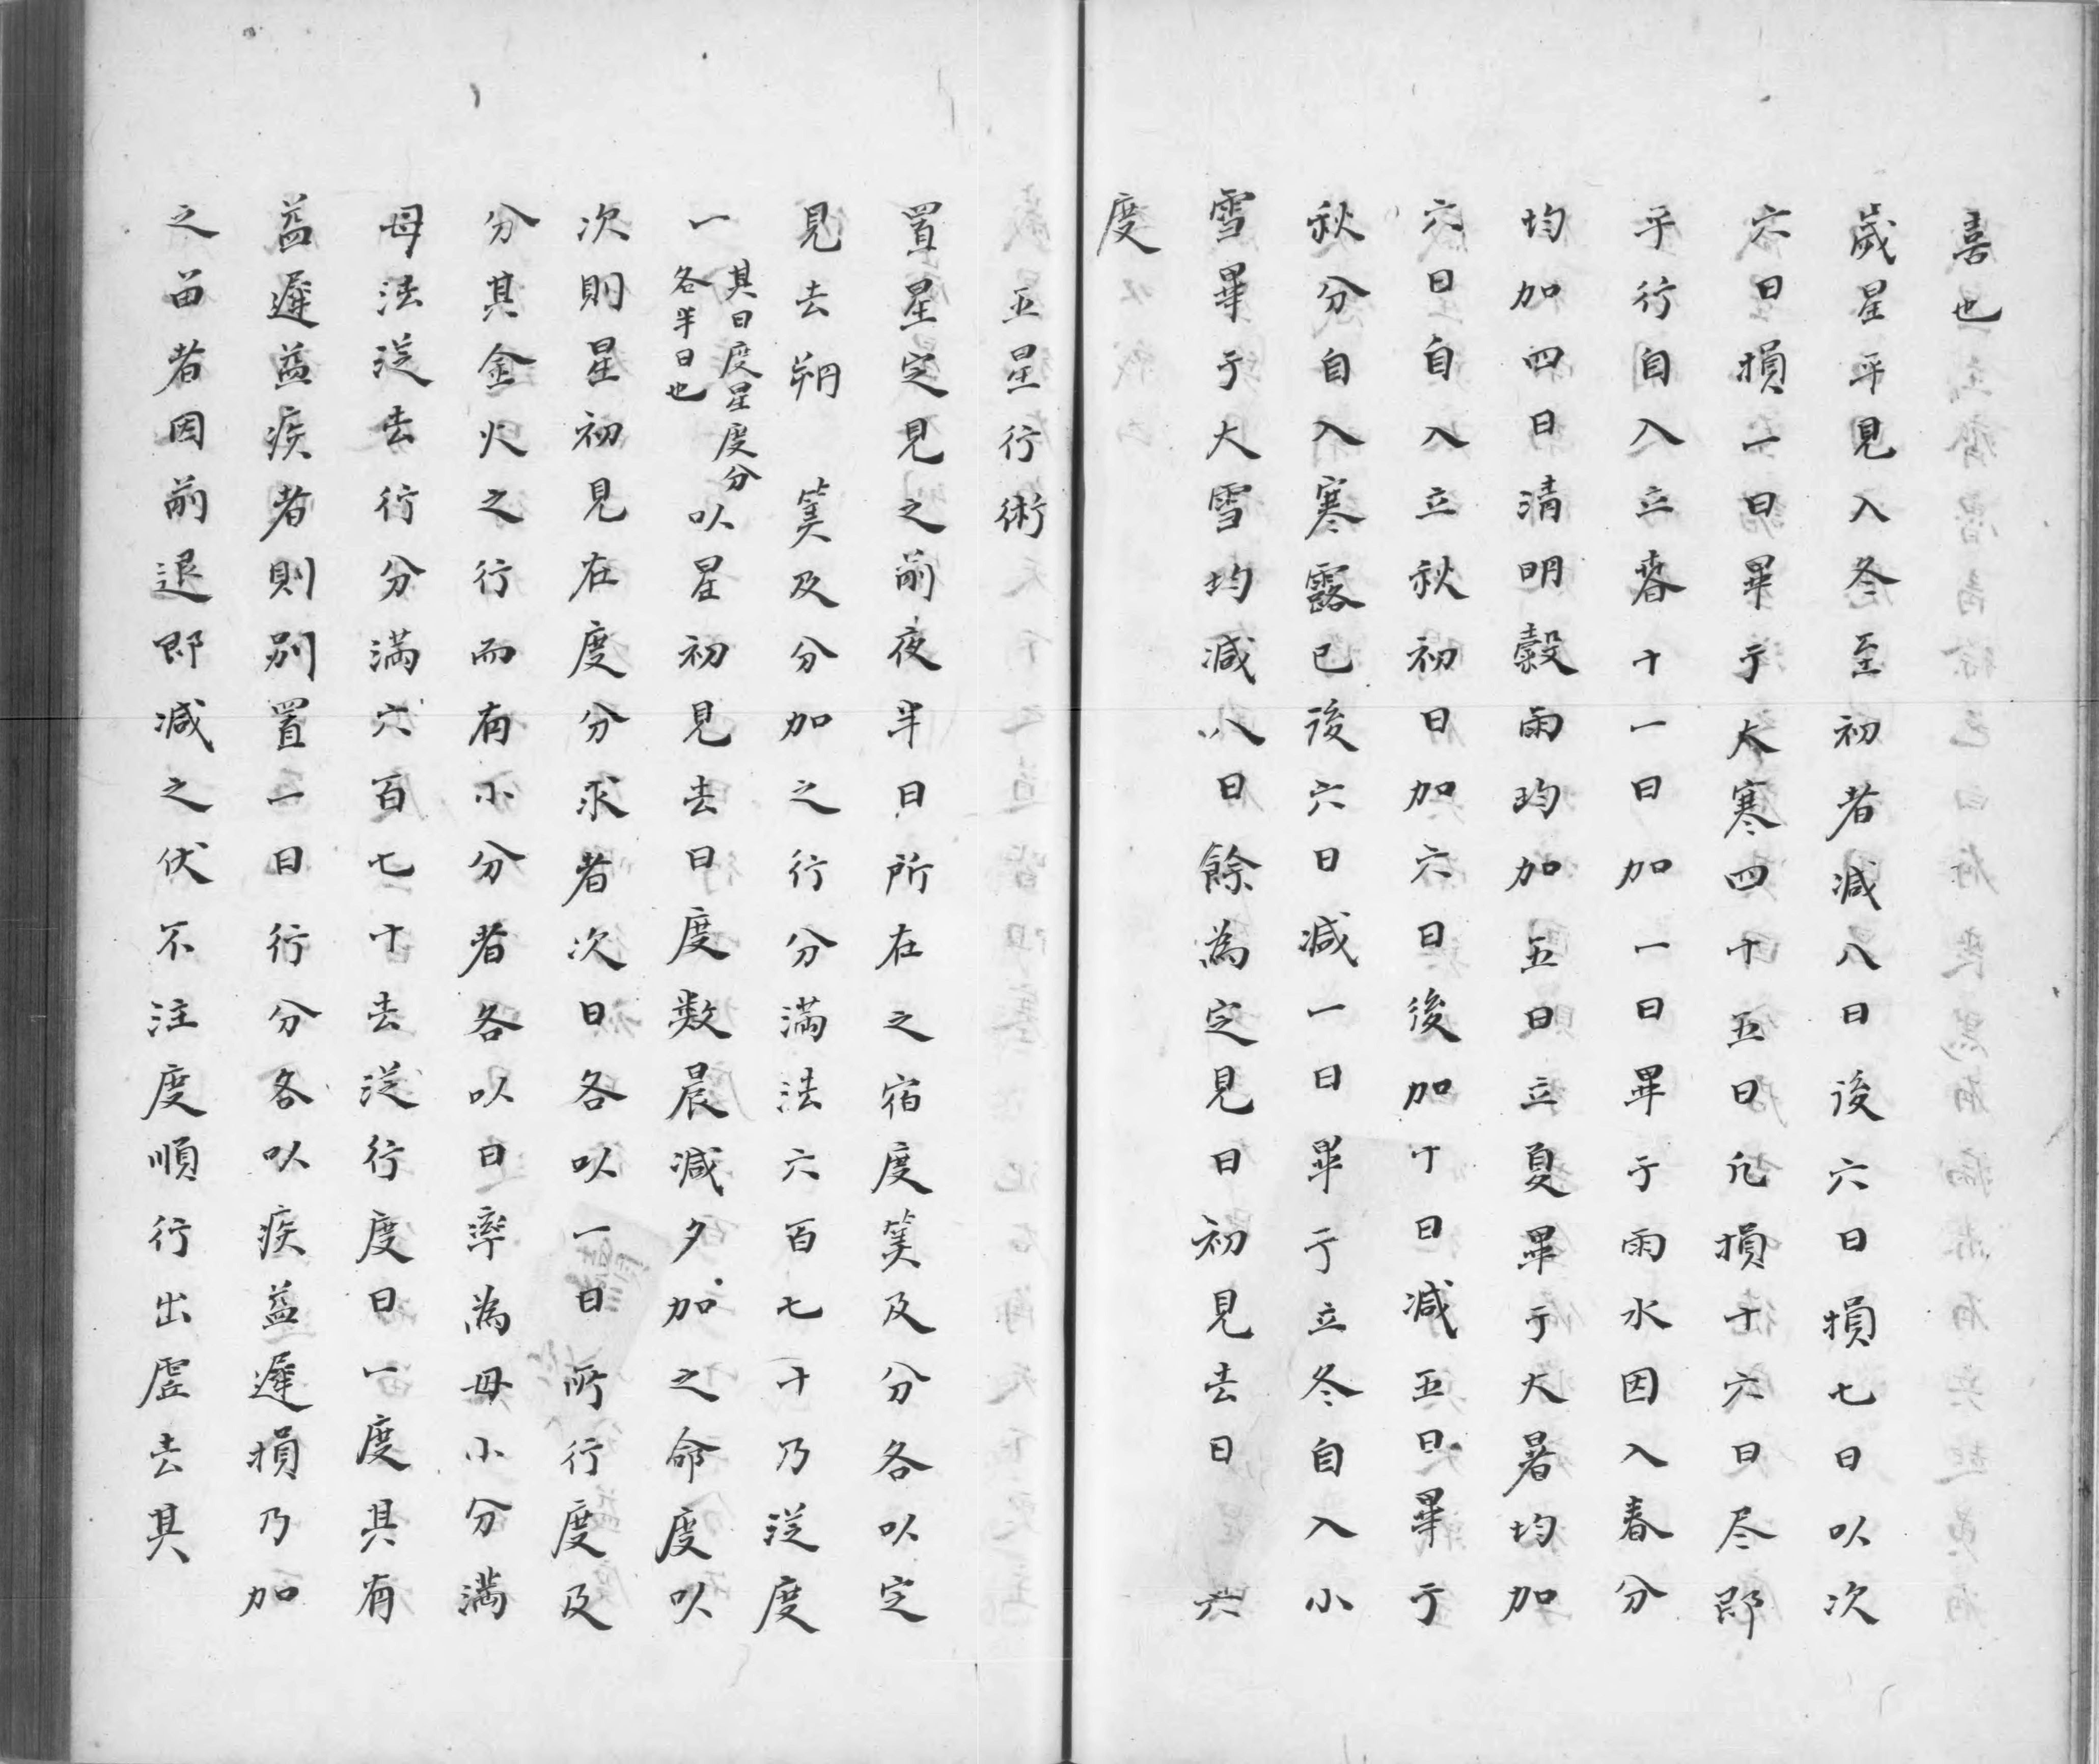 喜也
歲星平見入冬至初者減八日後六日損七日以次
六日損一日畢于大寒四十五日凡損十六日尽即
平行自入立春十一日加一日畢于雨水因入春分
均加四日清明穀雨均加五日立夏畢于大暑均加
六日自入立秋初日加六日後加十日減五日畢于
秋分自入寒露已後六日減一日畢于立冬自入小
雪畢于大雪均減八日餘為定見日初見去日 六
度
五星行術
置星定見之前夜半日所在之宿度筭及分各以定
見去朔 筭及分加之行分満法六百七十乃従度
一其日度星度分各半日也以星初見去日度数晨減夕加之命度以
次則星初見在度分求者次日各以一日所行度及
分其金火之行而有小分者各以日率為母小分満
母法従去行分満六百七十去従行度日一度其有
益遲益疾者則別置一日行分各以疾益遲損乃加
之畄者因前退即減之伏不注度順行出虚去其